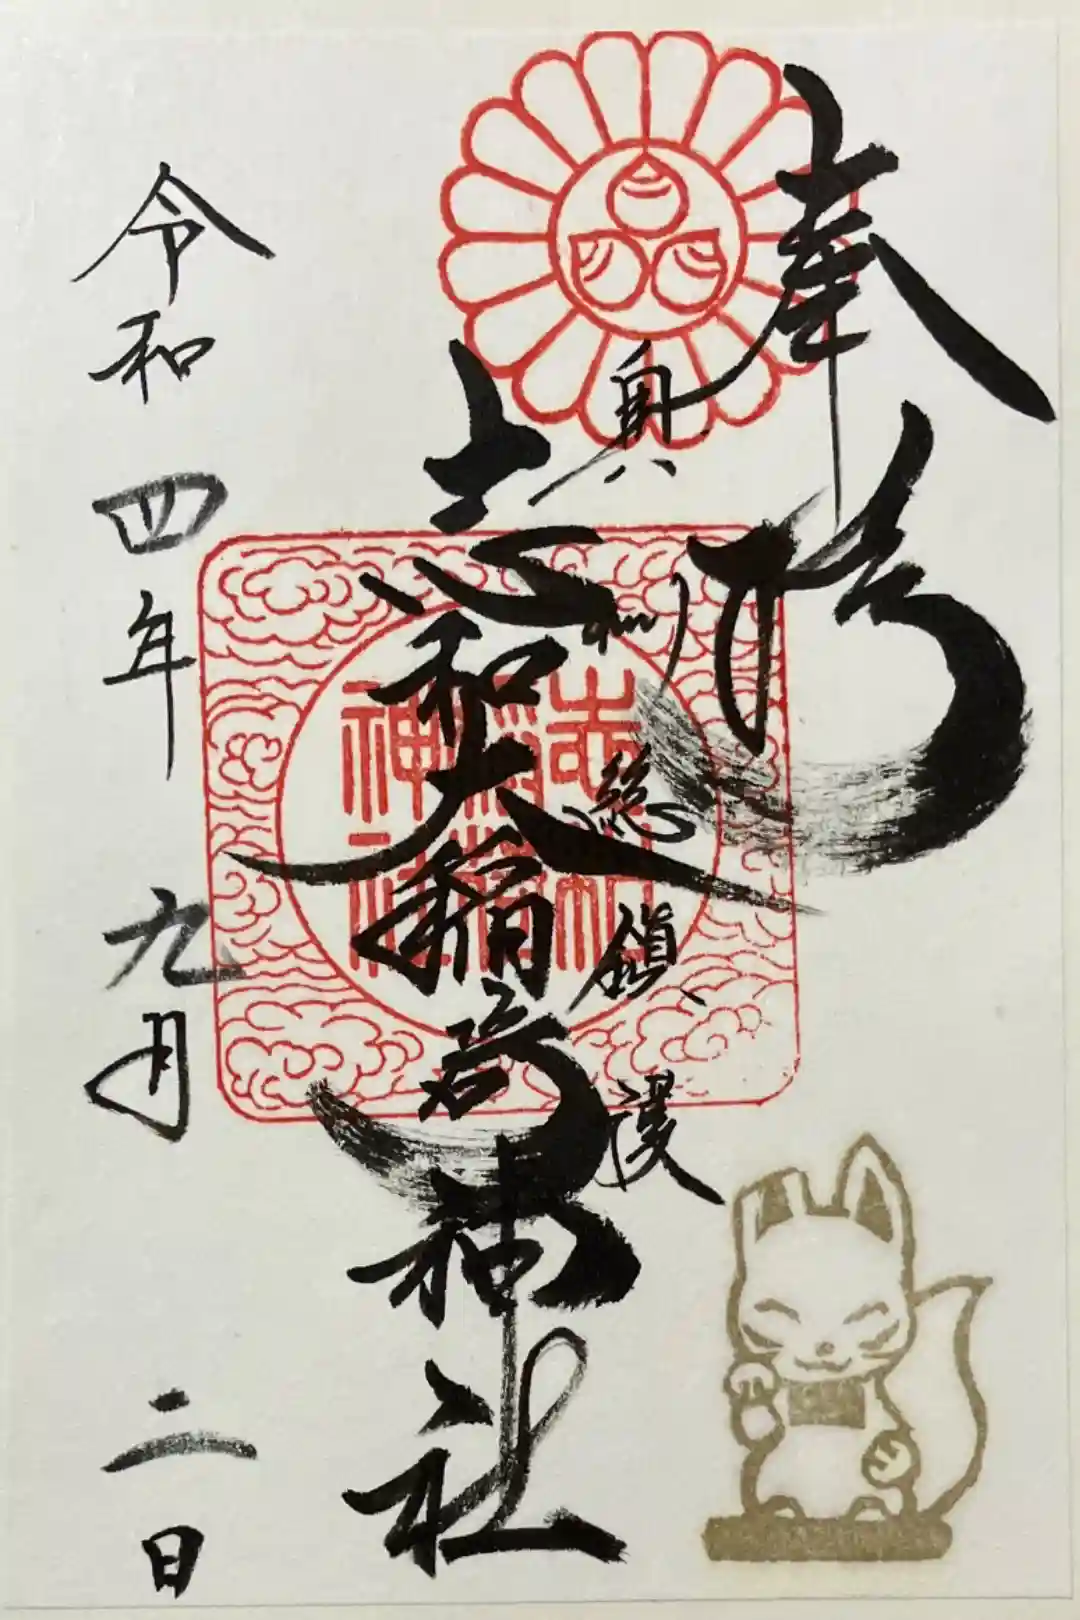 奉拝
奥州総鎮護
志和大稲荷神社
志和
稲荷
神社
令和四年九月二日